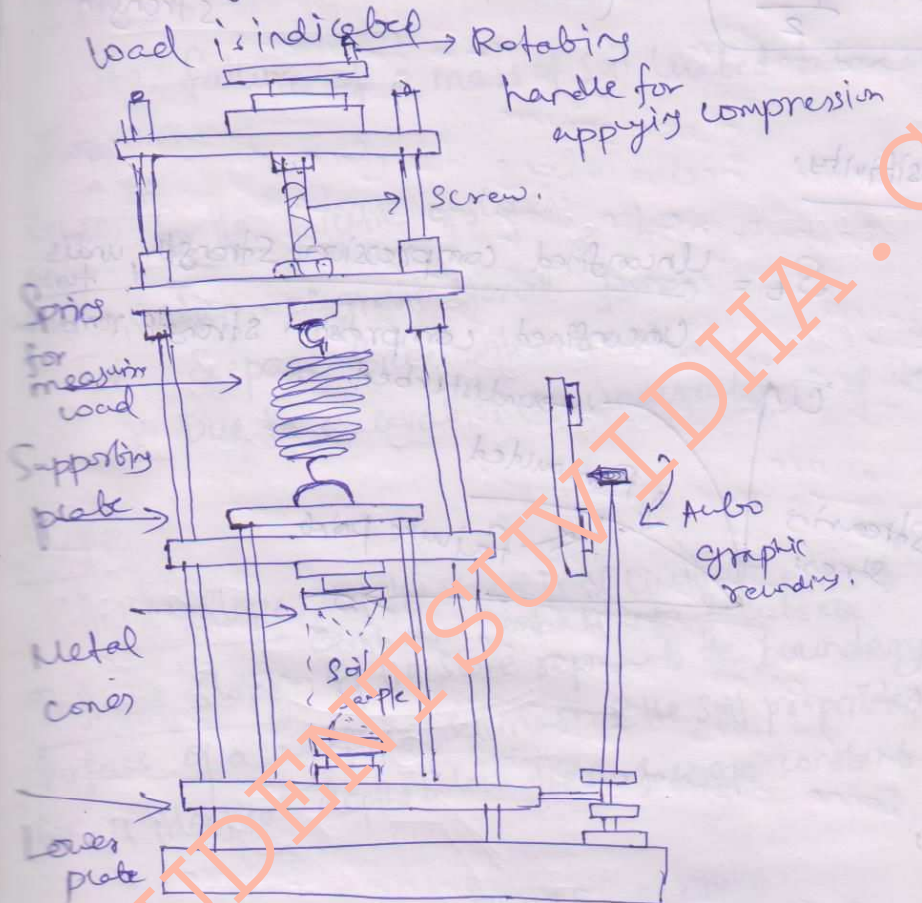 Load is indicated
Rotating
handle for
applying compression
Screw.
Spring
for
measuring
load
Supporting
plate
Auto
graphic
recording.
Metal
cones
Soil
sample
Lower
plate
STUDENTSUVIDHA.C